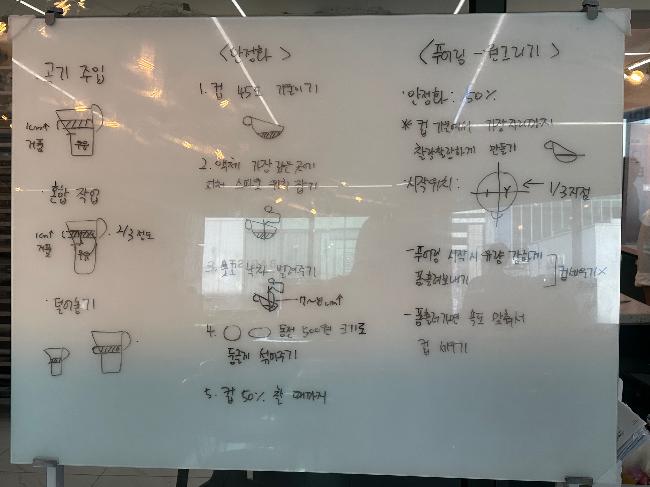 고기 주입
1cm↑
거품
우유
· 혼합 작업
1cm↑
거품
2/3 정도
우유
· 덜어놓기
<안정화>
1. 컵 45도 기울이기
2. 액체 가장 깊은 곳에
피처 스파웃 위치 잡기
3. 낙차 벌려주기
7~8cm↑
4. 동전 500원 크기로
둥글게 섞어주기
5. 컵 50% 찰 때까지
<푸어링 - 원그리기>
· 안정화 : 50%
* 컵 기울여서 가장자리까지
찰랑찰랑하게 만들기
· 시작위치 :
← 1/3 지점
- 푸어링 시작 시 유량 강하게
폼 흘려보내기
컵세우기 X
- 폼 흘러가면 속도 맞춰서
컵 세우기